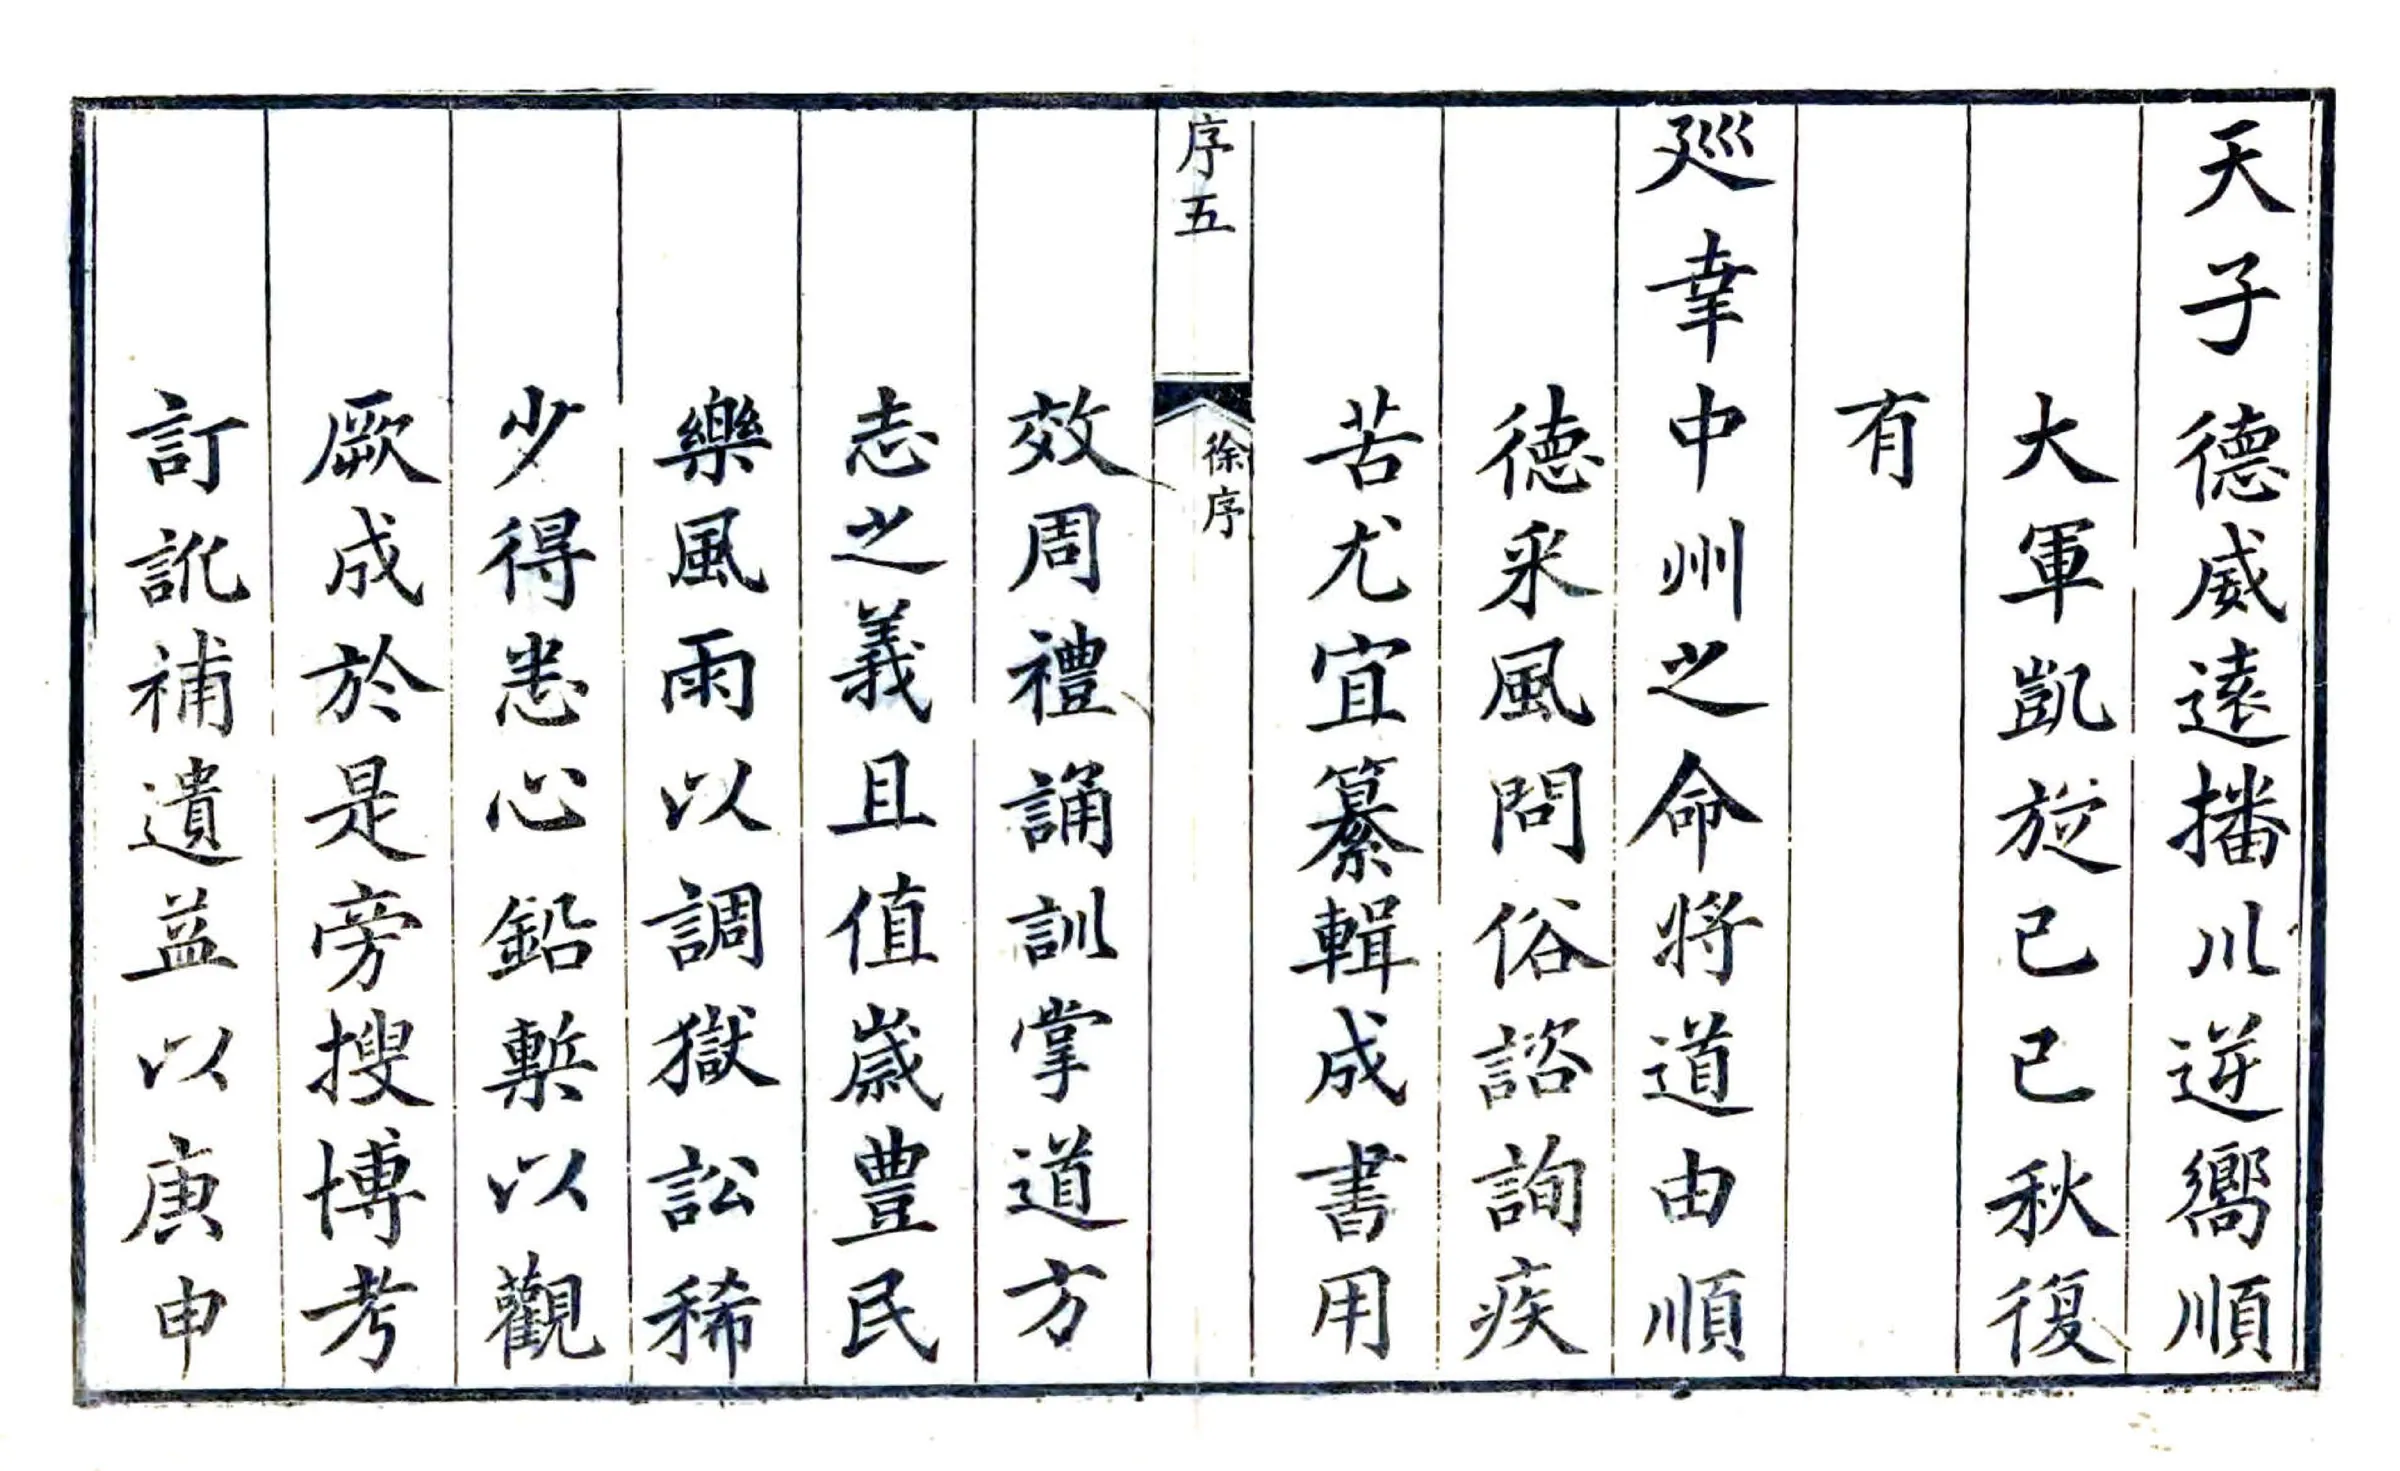 天子德威遠播川逆嚮順
大軍凱旋己巳秋復
有
廵幸中州之命將道由順
德采風問俗諮詢疾
苦尤宜纂輯成書用
序五
徐序
效周禮誦訓掌道方
志之義且值歲豊民
樂風雨以調獄訟稀
少得悉心鉛槧以觀
厥成於是旁搜博考
訂訛補遺益以庚申